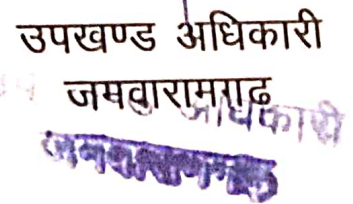 उपखण्ड अधिकारी
जमवारामगढ़
अधिकारी